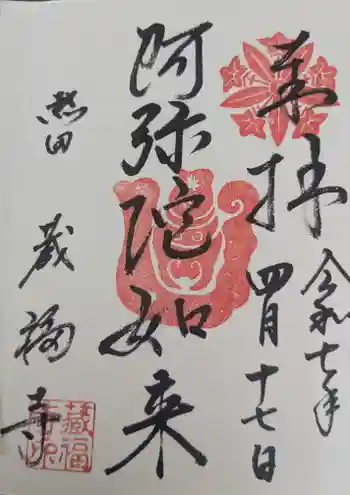 奉拝
令和七年
四月十七日
阿弥陀如来
熱田
蔵福寺